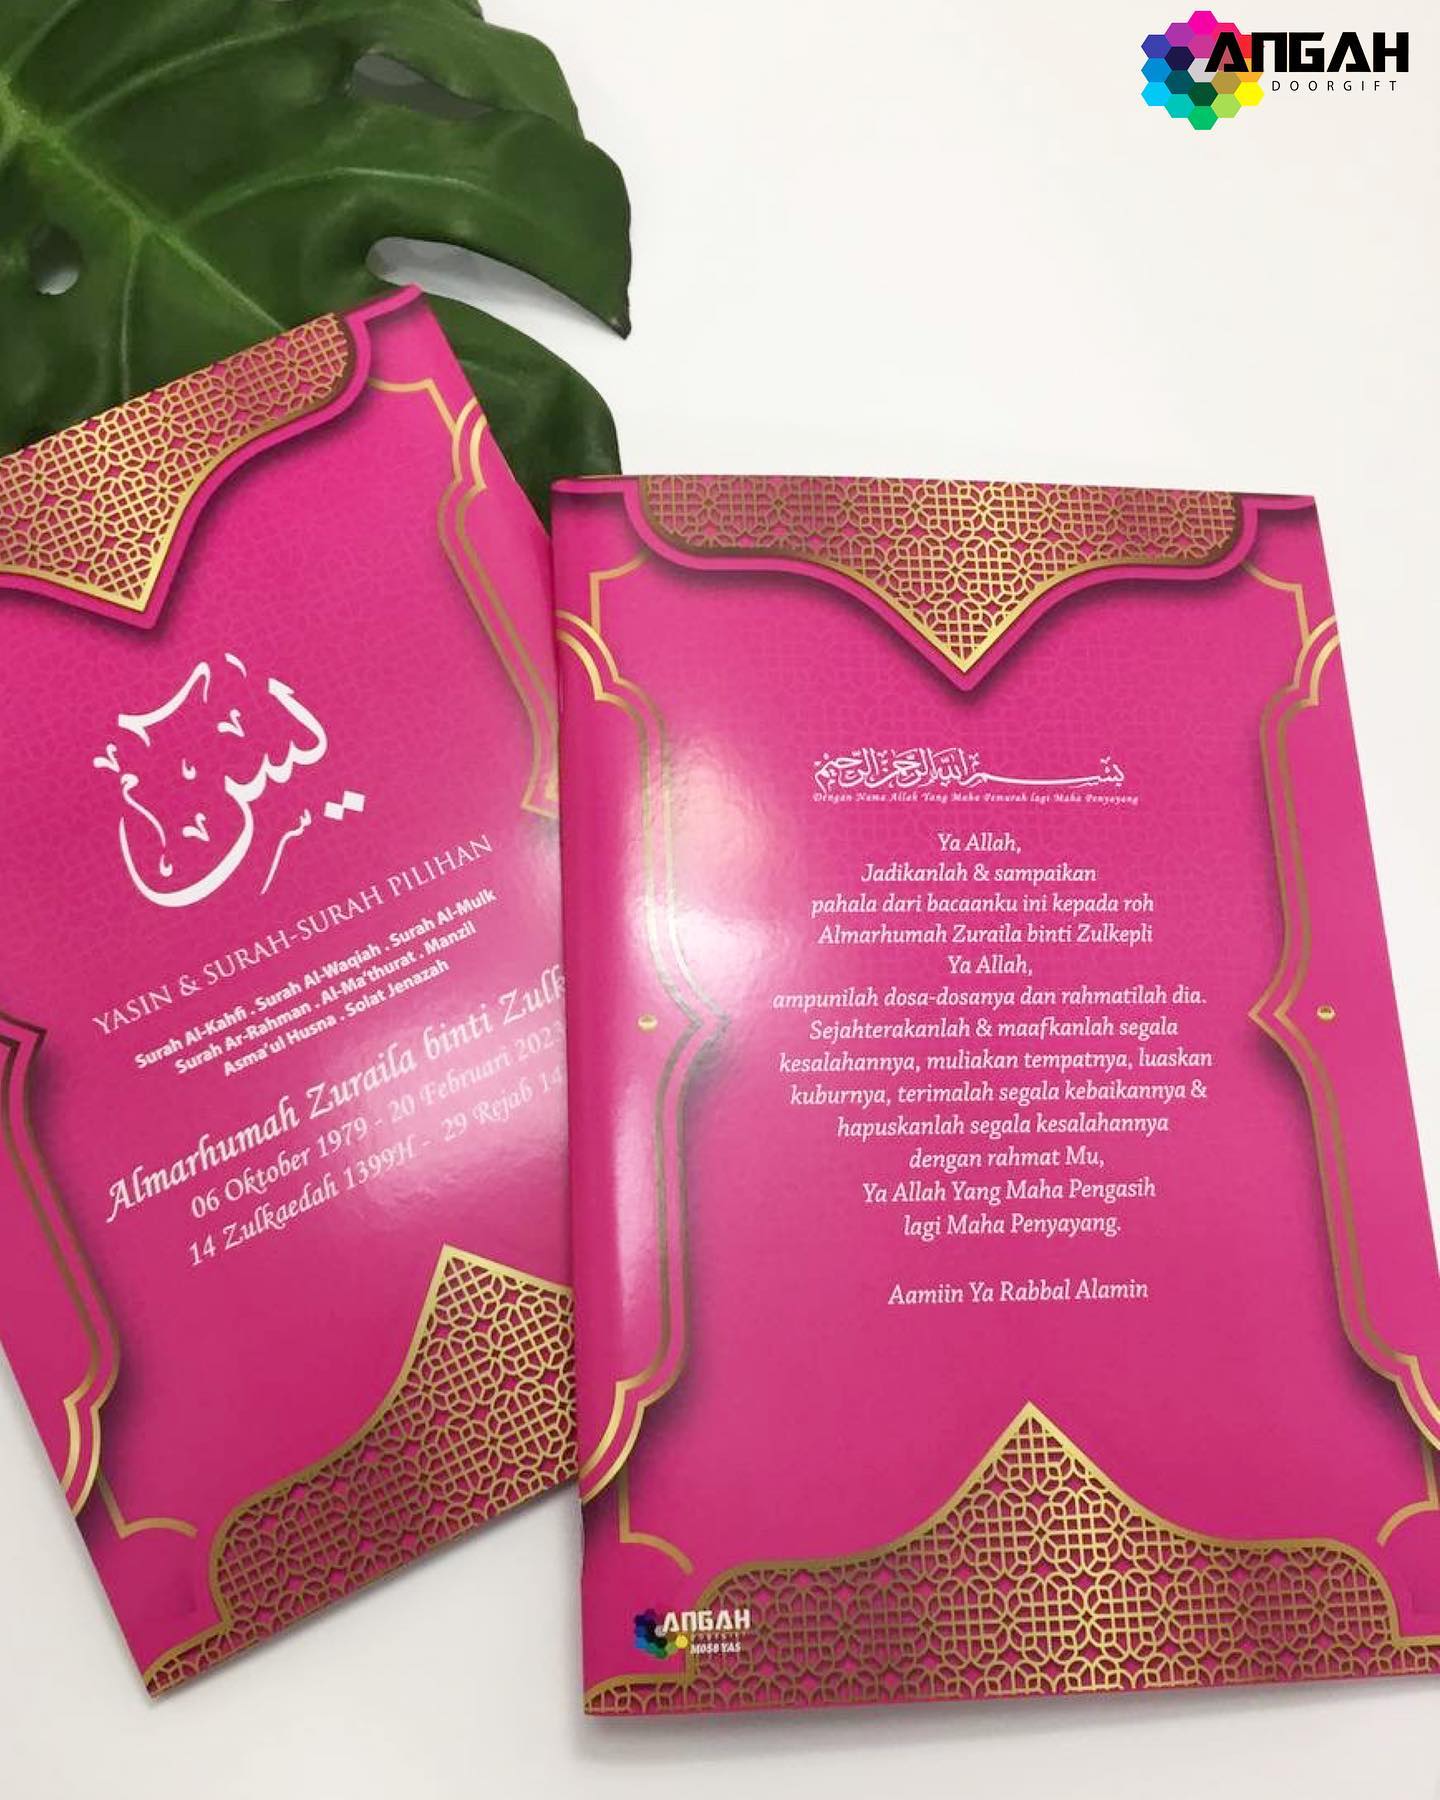 ANGAH
DOORGIFT
يس
YASIN & SURAH-SURAH PILIHAN
Surah Al-Kahfi . Surah Al-Waqiah . Surah Al-Mulk
Surah Ar-Rahman . Al-Ma'thurat . Manzil
Asma'ul Husna . Solat Jenazah
Almarhumah Zuraila binti Zulk
06 Oktober 1979 - 20 Februari 2023
14 Zulkaedah 1399H - 29 Rejab 14
بسم الله الرحمن الرحيم
Dengan Nama Allah Yang Maha Pemurah lagi Maha Penyayang
Ya Allah,
Jadikanlah & sampaikan
pahala dari bacaanku ini kepada roh
Almarhumah Zuraila binti Zulkepli
Ya Allah,
ampunilah dosa-dosanya dan rahmatilah dia.
Sejahterakanlah & maafkanlah segala
kesalahannya, muliakan tempatnya, luaskan
kuburnya, terimalah segala kebaikannya &
hapuskanlah segala kesalahannya
dengan rahmat Mu,
Ya Allah Yang Maha Pengasih
lagi Maha Penyayang.
Aamiin Ya Rabbal Alamin
ANGAH
DOORGIFT
M058 YAS